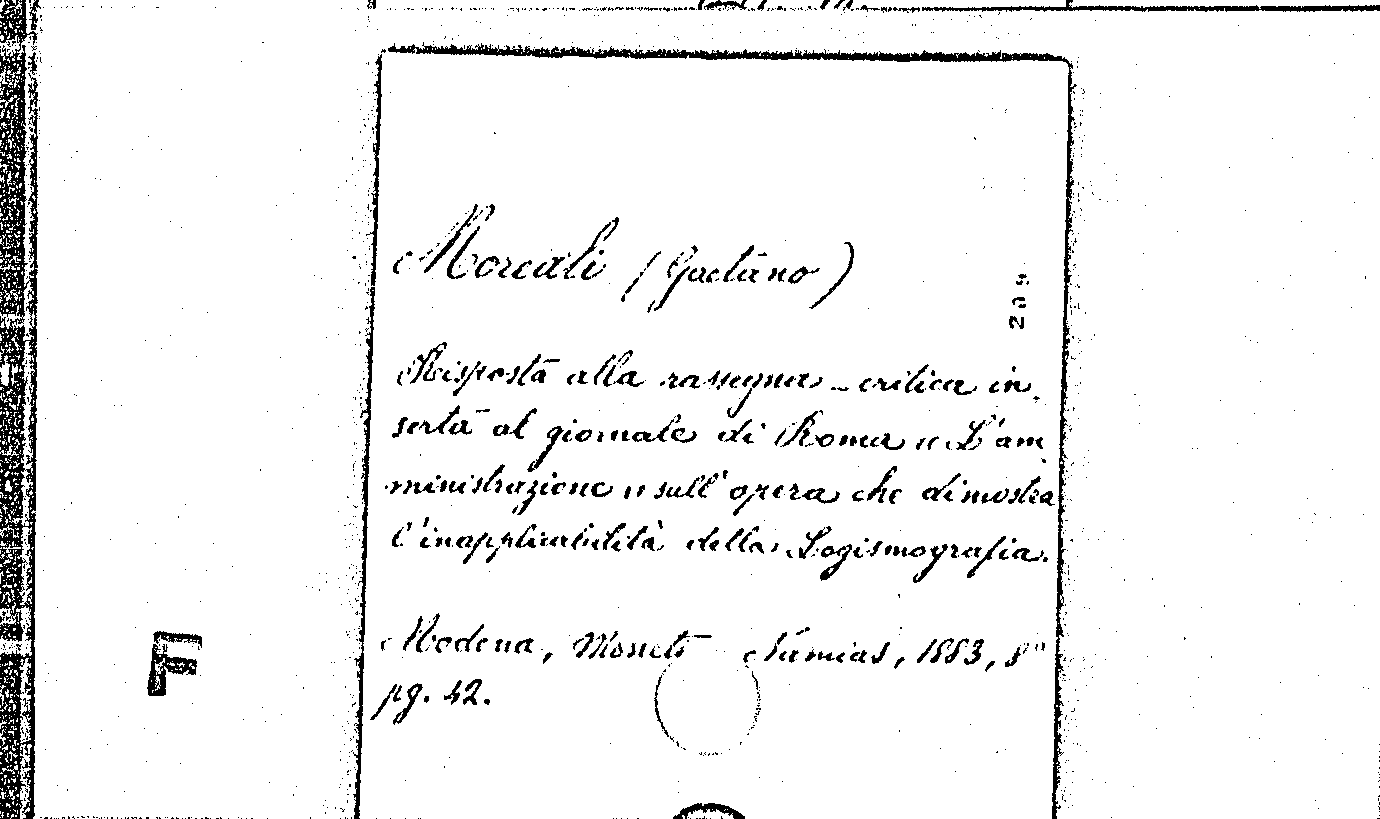 Morcali (Gaetano)
209
Risposta alla rassegna-critica in-
serta al giornale di Roma « L'am-
ministrazione » sull'opera che dimostra
l'inapplicabilità della Logismografia.
Modena, Moneti Namias, 1883, 8°
pg. 42.
F